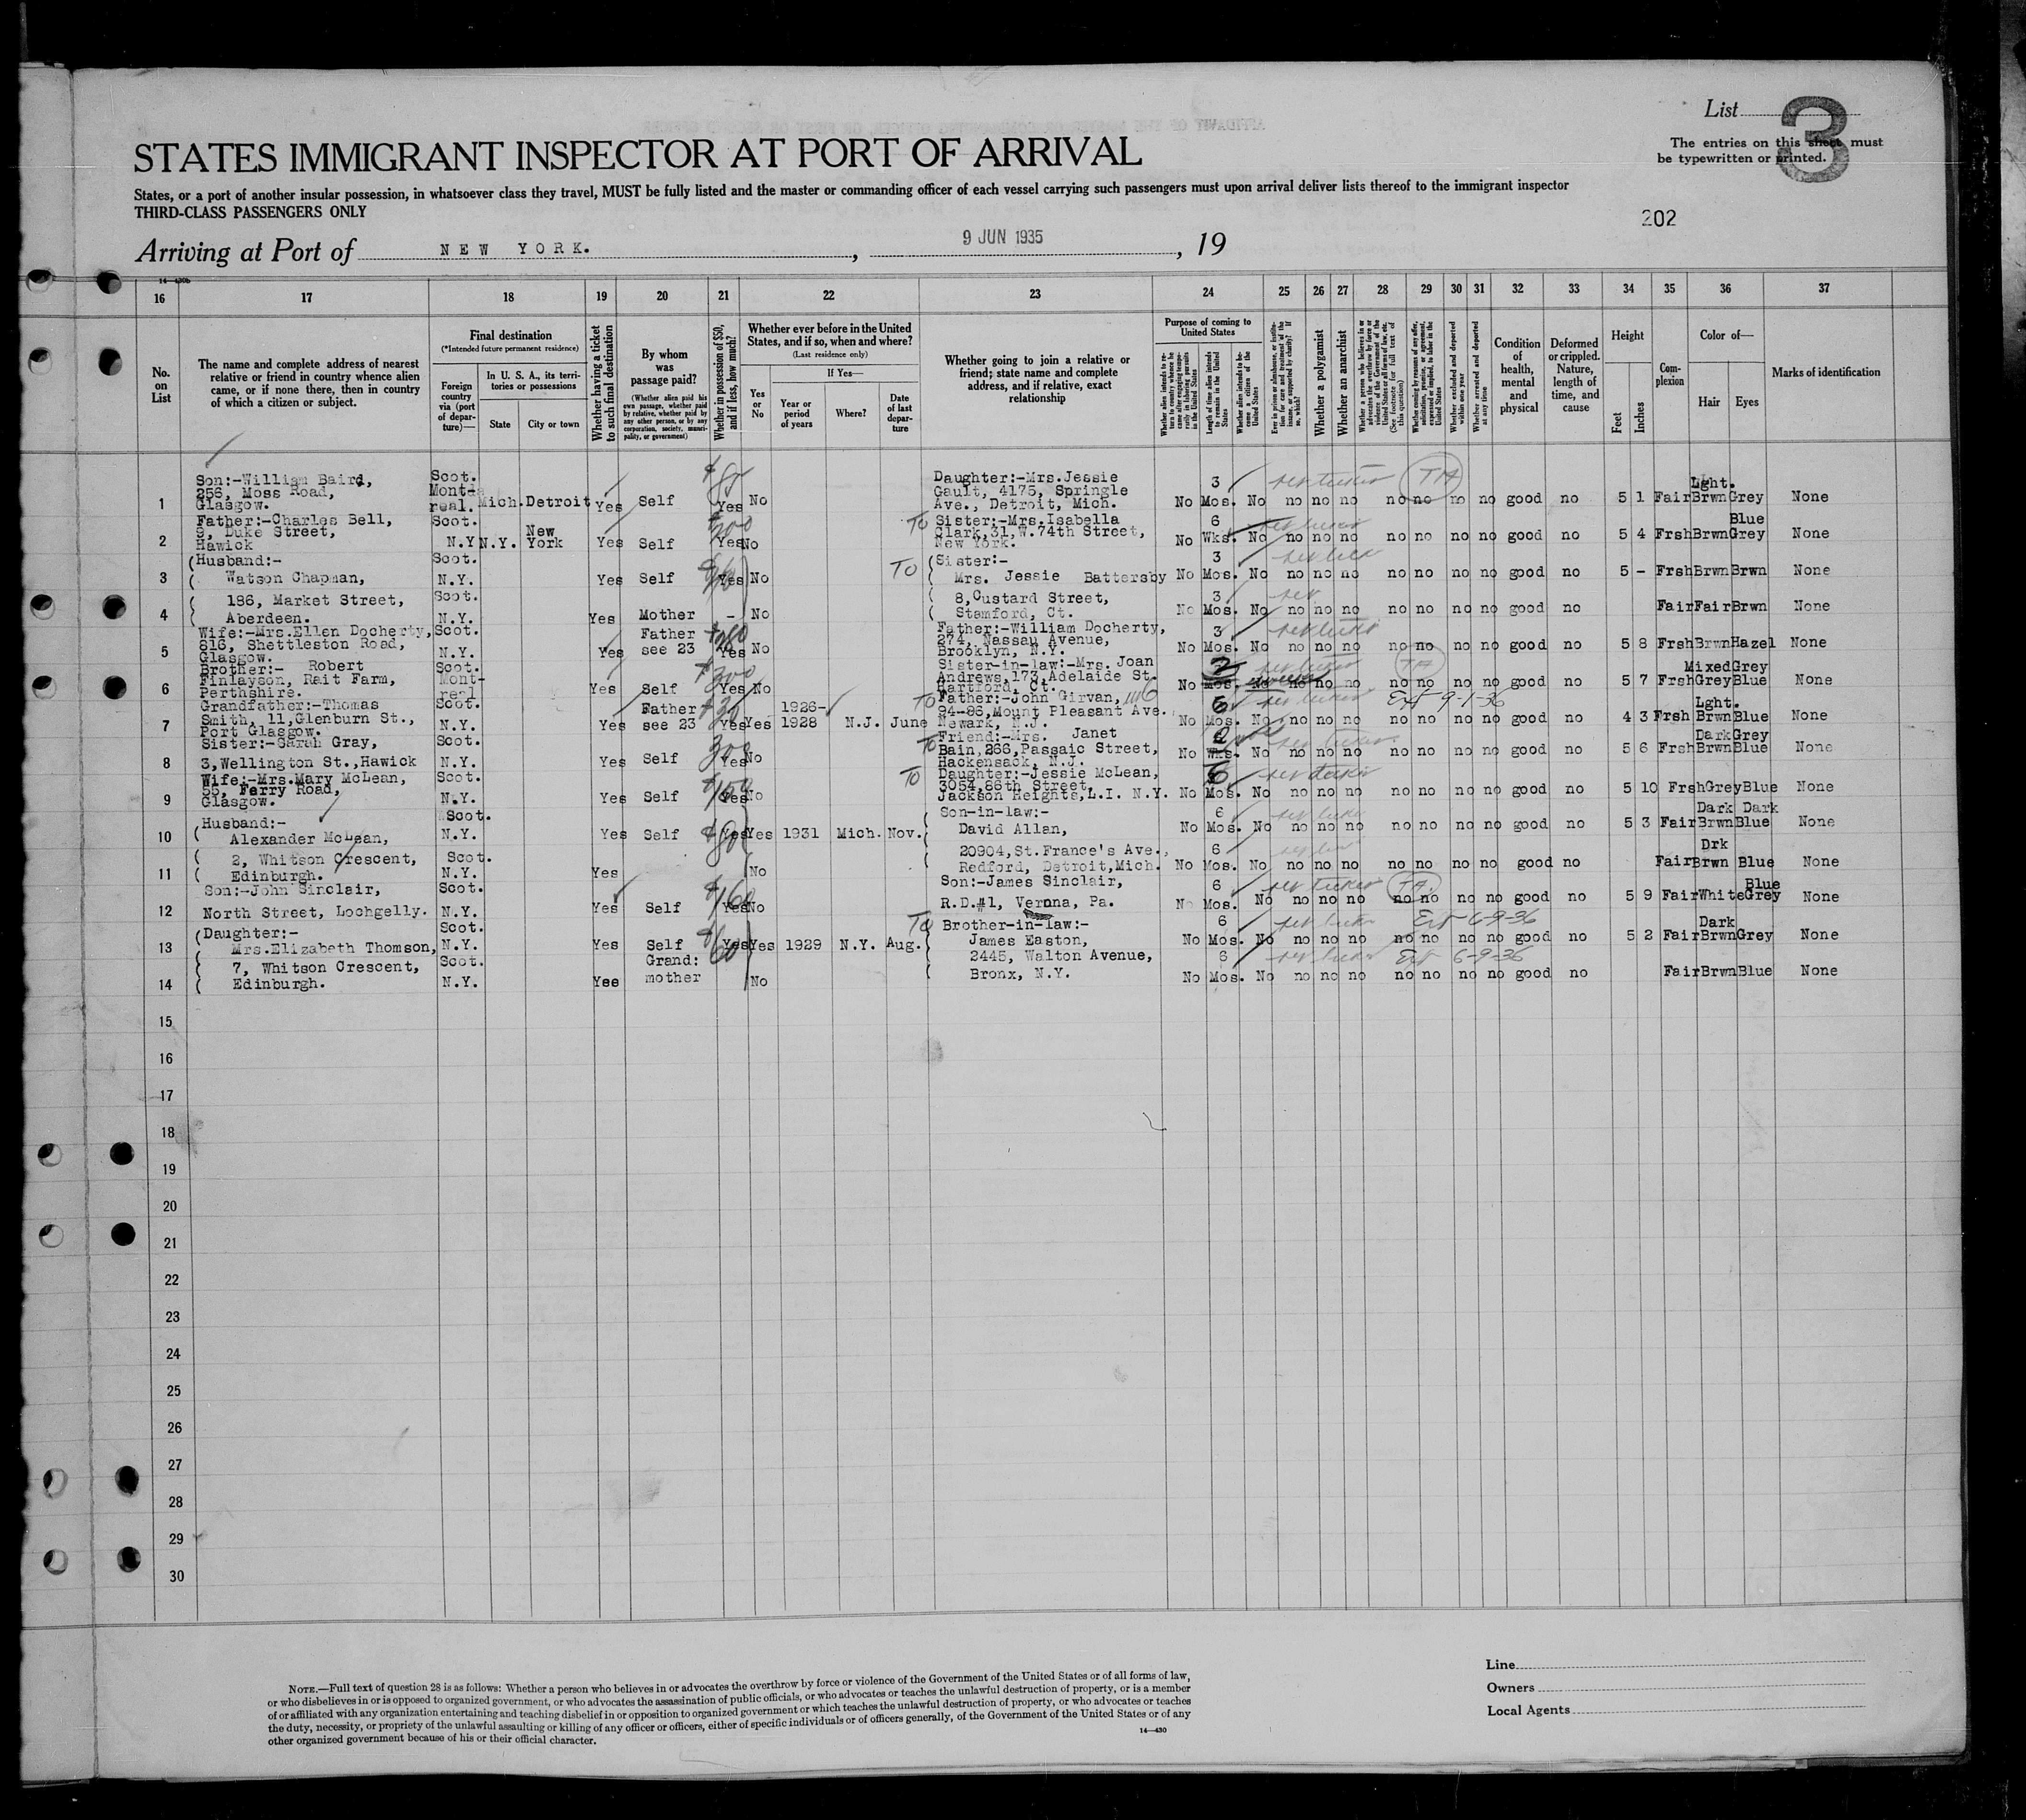 List 3
The entries on this sheet must
be typewritten or printed.
STATES IMMIGRANT INSPECTOR AT PORT OF ARRIVAL
States, or a port of another insular possession, in whatsoever class they travel, MUST be fully listed and the master or commanding officer of each vessel carrying such passengers must upon arrival deliver lists thereof to the immigrant inspector
THIRD-CLASS PASSENGERS ONLY
202
Arriving at Port of NEW YORK. , 9 JUN 1935 , 19
16 17 18 19 20 21 22 23 24 25 26 27 28 29 30 31 32 33 34 35 36 37
No.
on
List
The name and complete address of nearest
relative or friend in country whence alien
came, or if none there, then in country
of which a citizen or subject.
Final destination
(*Intended future permanent residence)
Foreign
country
via (port
of depar-
ture)—
In U. S. A., its terri-
tories or possessions
State
City or town
Whether having a ticket
to such final destination
By whom
was
passage paid?
(Whether alien paid his
own passage, whether paid
by relative, whether paid by
any other person, or by any
corporation, society, munici-
pality, or government)
Whether in possession of $50,
and if less, how much?
Whether ever before in the United
States, and if so, when and where?
(Last residence only)
Yes
or
No
If Yes—
Year or
period
of years
Where?
Date
of last
depar-
ture
Whether going to join a relative or
friend; state name and complete
address, and if relative, exact
relationship
Purpose of coming to
United States
Length of time alien intends
to remain in the United
States
Whether a polygamist
Whether an anarchist
Whether excluded and deported
within one year
Whether arrested and deported
at any time
Condition
of
health,
mental
and
physical
Deformed
or crippled.
Nature,
length of
time, and
cause
Height
Feet
Inches
Com-
plexion
Color of—
Hair
Eyes
Marks of identification
1 Son:-William Baird, 256, Moss Road, Glasgow. Scot. Mont-real. Mich. Detroit Yes Self Yes No Daughter:-Mrs.Jessie Gault, 4175, Springle Ave., Detroit, Mich. No 3 Mos. No no no no no no no no good no 5 1 Fair Lght. Brwn Grey None
2 Father:-Charles Bell, 9, Duke Street, Hawick Scot. N.Y. N.Y. New York Yes Self Yes No To Sister:-Mrs.Isabella Clark,31,W.74th Street, New York. No 6 Wks. No no no no no no no no good no 5 4 Frsh Brwn Blue Grey None
3 (Husband:- Watson Chapman, Scot. N.Y. Yes Self Yes No To (Sister:- Mrs. Jessie Battersby No 3 Mos. No no no no no no no no good no 5 - Frsh Brwn Brwn None
4 186, Market Street, Aberdeen. Scot. N.Y. Yes Mother - No 8,Custard Street, Stamford, Ct. No 3 Mos. No no no no no no no no good no Fair Fair Brwn None
5 Wife:-Mrs.Ellen Docherty, 816, Shettleston Road, Glasgow. Scot. N.Y. Yes Father see 23 Yes No Father:-William Docherty, 274, Nassau Avenue, Brooklyn, N.Y. No 3 Mos. No no no no no no no no good no 5 8 Frsh Brwn Hazel None
6 Brother:- Robert Finlayson, Rait Farm, Perthshire. Scot. Mont-real Yes Self $300 Yes No Sister-in-law:-Mrs. Joan Andrews,173,Adelaide St. Hartford, Ct. No 2 Mos. No no no no no no no no good no 5 7 Frsh Mixed Grey Grey Blue None
7 Grandfather:-Thomas Smith, 11,Glenburn St., Port Glasgow. Scot. N.Y. Yes Father see 23 Yes Yes 1926-1928 N.J. June To Father:-John Girvan, 94-86,Mount Pleasant Ave. Newark, N.J. No 6 Mos. No no no no no no no no good no Ext 9-1-36 4 3 Frsh Lght. Brwn Blue None
8 Sister:-Sarah Gray, 3,Wellington St.,Hawick Scot. N.Y. Yes Self 300 Yes No To Friend:-Mrs. Janet Bain,266,Passaic Street, Hackensack, N.J. No Wks. No no no no no no no no good no 5 6 Frsh Dark Brwn Grey Blue None
9 Wife:-Mrs.Mary McLean, 55, Ferry Road, Glasgow. Scot. N.Y. Yes Self $150 Yes No To Daughter:-Jessie McLean, 3054,86th Street, Jackson Heights,L.I. N.Y. No 6 Mos. No no no no no no no no good no 5 10 Frsh Grey Blue None
10 (Husband:- Alexander McLean, Scot. N.Y. Yes Self $80 Yes Yes 1931 Mich. Nov. (Son-in-law:- David Allan, No 6 Mos. No no no no no no no no good no 5 3 Fair Dark Brwn Dark Blue None
11 2, Whitson Crescent, Edinburgh. Scot. N.Y. Yes No 20904,St.France's Ave., Redford, Detroit,Mich. No 6 Mos. No no no no no no no no good no Fair Drk Brwn Blue None
12 Son:-John Sinclair, North Street, Lochgelly. Scot. N.Y. Yes Self $160 Yes No Son:-James Sinclair, R.D.#1, Verona, Pa. No 6 Mos. No no no no no no no no good no 5 9 Fair White Blue Grey None
13 (Daughter:- Mrs.Elizabeth Thomson, Scot. N.Y. Yes Self $60 Yes Yes 1929 N.Y. Aug. To Brother-in-law:- James Easton, No 6 Mos. No no no no no no no no good no Ext 6-9-36 5 2 Fair Dark Brwn Grey None
14 7, Whitson Crescent, Edinburgh. Scot. N.Y. Yes Grand: mother No 2445, Walton Avenue, Bronx, N.Y. No 6 Mos. No no no no no no no no good no Ext 6-9-36 Fair Brwn Blue None
15
16
17
18
19
20
21
22
23
24
25
26
27
28
29
30
NOTE.—Full text of question 28 is as follows: Whether a person who believes in or advocates the overthrow by force or violence of the Government of the United States or of all forms of law,
or who disbelieves in or is opposed to organized government, or who advocates the assassination of public officials, or who advocates or teaches the unlawful destruction of property, or is a member
of or affiliated with any organization entertaining and teaching disbelief in or opposition to organized government or which teaches the unlawful destruction of property, or who advocates or teaches
the duty, necessity, or propriety of the unlawful assaulting or killing of any officer or officers, either of specific individuals or of officers generally, of the Government of the United States or of any
other organized government because of his or their official character.
14—430
Line
Owners
Local Agents